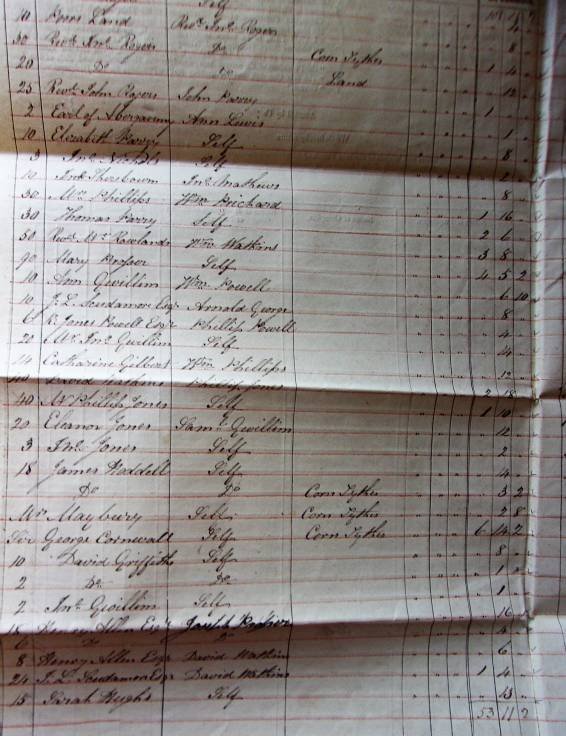 Self
10 Poor Land Revd. Jno. Rogers 4 "
30 Revd. Jno. Rogers Do 8 "
20 Do Do Corn Tythes 1 4 "
Land 12
25 Revd. John Rogers John Parry
2 Earl of Abergavenny Ann Lewis 1
10 Elizabeth Parry Self 1
3 Jno. Nichols Self 8
10 Jno. Mathews 2
30 Mrs. Phillips Wm. Prichard 8
30 Thomas Parry Self 1 16
50 Revd. Mr. Rowlands Wm. Watkins 2 6
90 Mary Prosser Self 3 8
10 Ann Gwillim Wm. Powell 4 5 2
10 J. L. Scudamore Esqr. Arnold George 6 10
6 Jones Powell Esqr. Phillip Powell 8
20 Mr. Jno. Gwillim Self 4
14 Catharine Gilbert Wm. Phillips 14
40 David Watkins Phillip Jones 12
40 Mr. Phillip Jones Self 2 18
20 Eleanor Jones Saml. Gwillim 1 10
3 Jno. Jones Self 12
18 James Hoddell Self 2
Do Do Corn Tythes 4
Mr. Maybury Self Corn Tythes 3 2
Sir George Cornwall Self Corn Tythes 2 8
10 David Griffiths Self 6 14 2
2 Do Do 8
2 Jno. Gwillim Self 1
Henry Allen Esqr. Joseph 16
6 Do Do 4
8 Henry Allen Esqr. David Watkins 6
24 J. L. Scudamore Esqr. David Watkins 1 4
15 Sarah Hughs Self 13
53 11 2